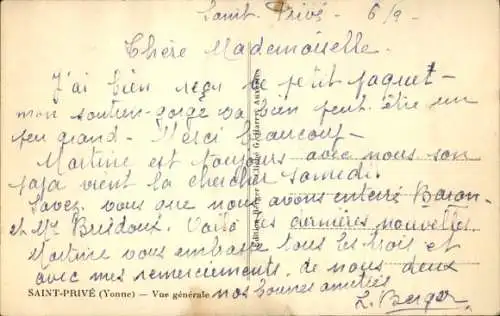 Saint-Privé - 6/9 -
Chère Mademoiselle.
J'ai bien reçu le petit paquet -
mon soutien-gorge va bien peut être un
peu grand - Merci beaucoup -
Martine est toujours avec nous son
papa vient la chercher samedi.
Savez vous que nous avons enterré Baron
et Mr Bridoux. Voilà les dernières nouvelles
Martine vous embrasse tous les trois et
avec mes remerciements, de nous deux
SAINT-PRIVÉ (Yonne) - Vue générale nos bonnes amitiés
L. Berger